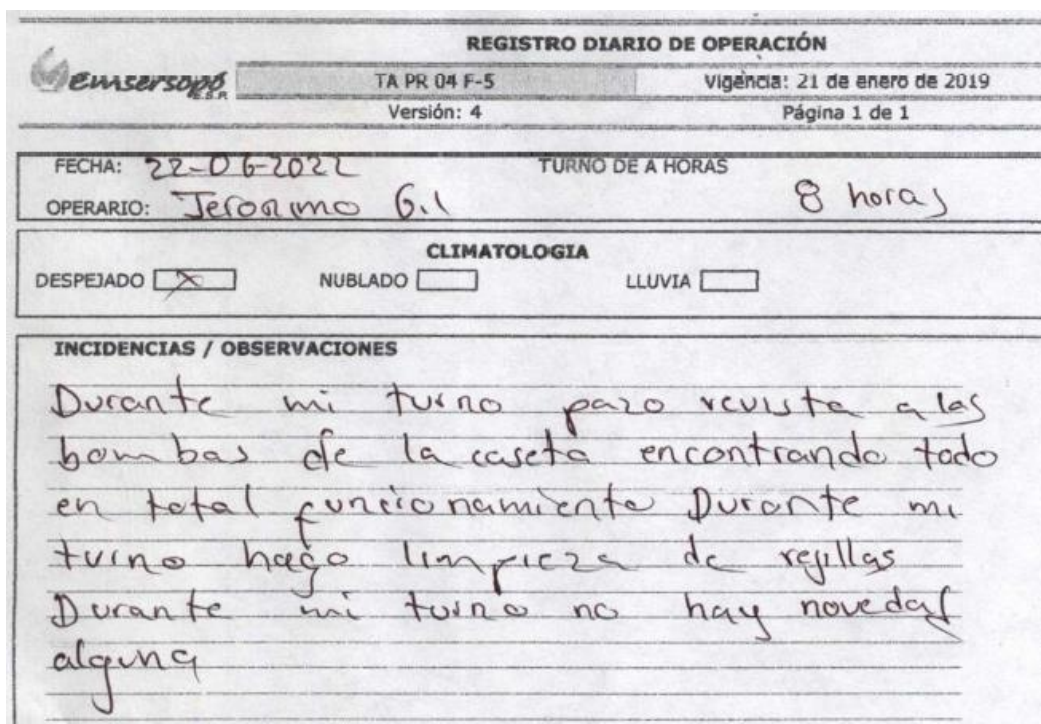 REGISTRO DIARIO DE OPERACIÓN
emsersopó E.S.P.
TA PR 04 F-5
Vigencia: 21 de enero de 2019
Versión: 4
Página 1 de 1
FECHA: 22-06-2022 TURNO DE A HORAS
OPERARIO: Jeronimo Gil 8 horas
CLIMATOLOGIA
DESPEJADO X NUBLADO LLUVIA
INCIDENCIAS / OBSERVACIONES
Durante mi turno pazo revista a las
bombas de la caseta encontrando todo
en total funcionamiento Durante mi
turno hago limpieza de rejillas
Durante mi turno no hay novedad
alguna